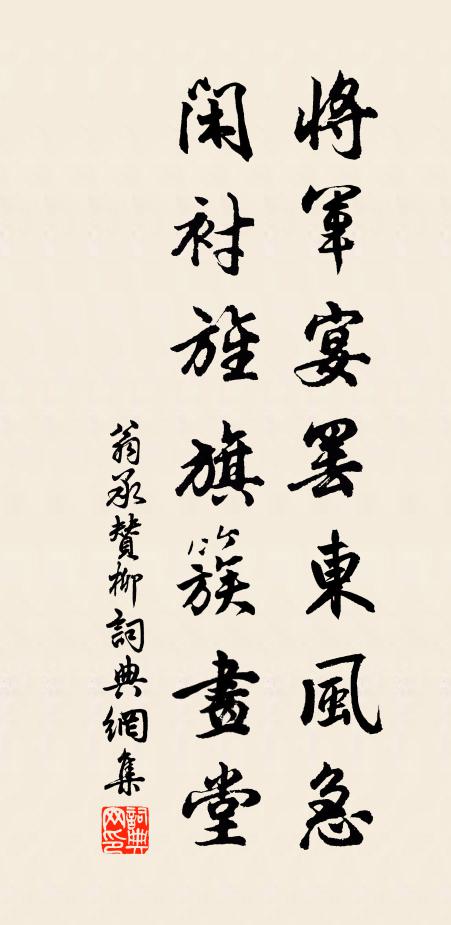 將軍宴罷東風急
閑襯旌旗簇畫堂
翁承贊柳詞典網集
詞典網印